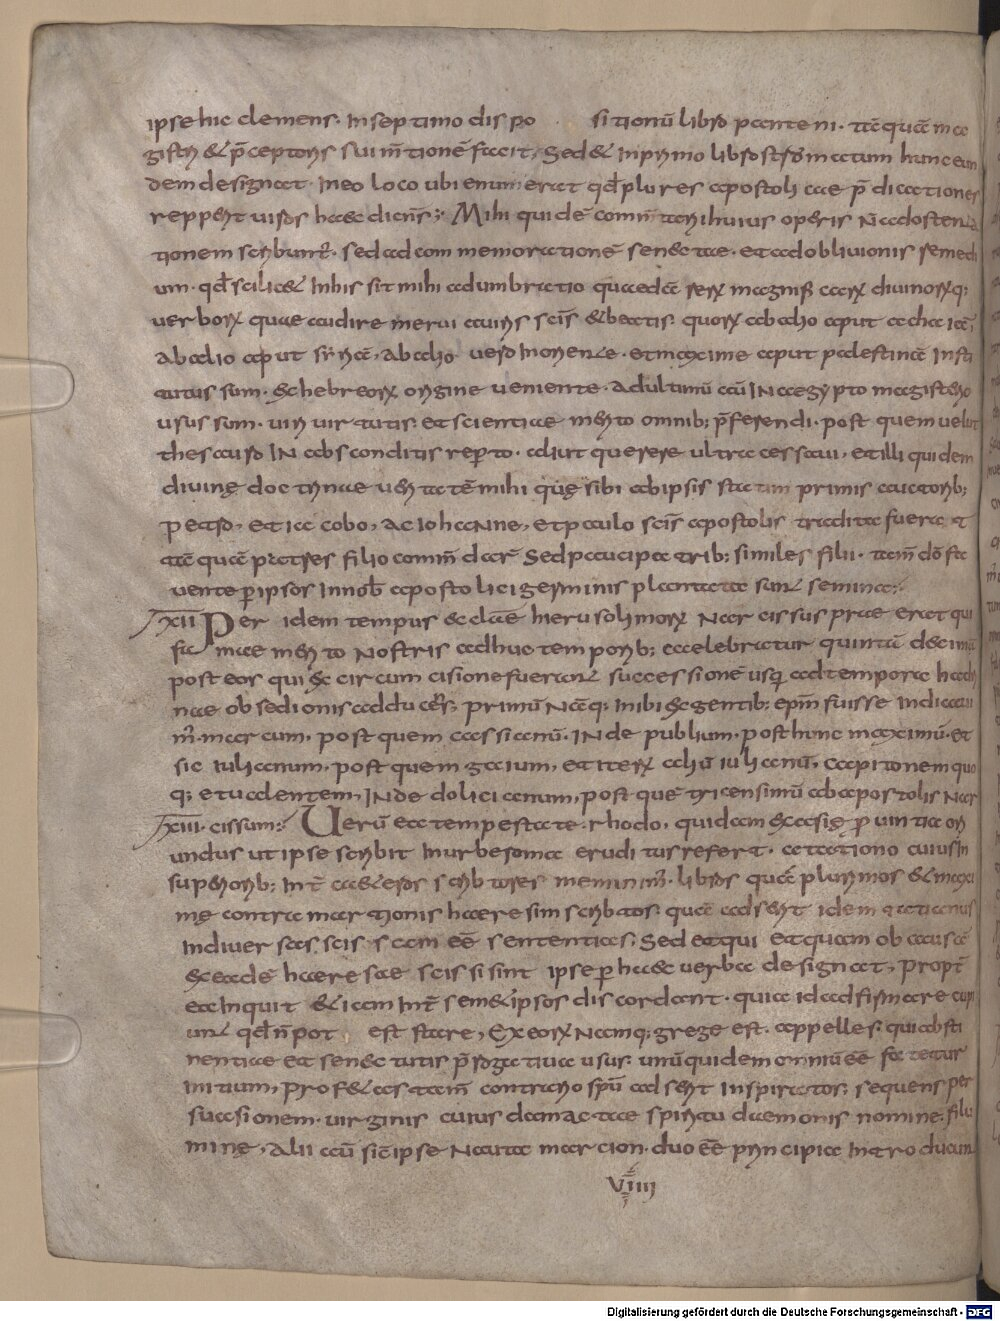 ipse hic clemens. In septimo dispo sitionū libro panteni. tāquā ma
gistri & p̄ceptoris sui m̄tionē facit, Sed & In primo libro strōmatum hunc eun
dem designat. In eo loco ubi enumerat qđ plures apostoli cae p̄dicationes
repperit uiros haec dicens; Mihi quidē comm̄tarii huius operis N adosten
tionem scribunt̄. sed ad commemorationē senectae. et ad obliuionis remedi
um. qđ scilic& In his sit mihi adumbratio quaedā rerꝝ magnifi carꝝ diuinorꝝq;
uerborꝝ quae audire merui a uiris sc̄is & beatis. quorꝝ ab alio aput achaiā,
ab alio aput syriā, ab alio uero In oriente. et maxime aput palestinā Insti
tutus sum. & hebreorꝝ origine ueniente. Ad ultimū aū IN aegypto magistro
usus sum. uiri uirtutis et scientiae merito omnib; p̄ferendi. post quem uelut
thesauro IN absconditis reperto. aliut querere ultra cessaui, et illi quidem
diuine doctrinae ueritatē mihi quę sibi ab ipsis statim primis auctorib;
petro, et iacobo, ac iohanne, et paulo sc̄is apostolis tradita fuerat
tāquā patres filio comm̄darꝝ Sed pauci patrib; similes filii. tam̄ dō fa
uente p̄ ipsos In nob̄ apostolici germinis plantata sunt semina;
XII Per idem tempus ecclāe hierusolimorꝝ Narcissus praeerat qui
fa mae merito Nostris adhuc temporib; celebratur quintū decimū
post eos qui & circumcisione fuerant successionē usq; ad tempora hadri
nae obsedionis adducens; primū Nāq; inibi & gentib; ep̄m fuisse Indicaui
m̄. marcum, post quem cassianū. INde publium. post hunc maximū. et
sic iulianum. post quem gaium, et iterꝝ aliū iulianū, capitonem quo
q; et ualentem, INde dolicianum, post quē tricensimū ab apostolis Nar
XIII. cissum; Uerū ea tempestate. rhodo, quidam & asię prouintia ori
undus ut ipse scribit In urbe roma eruditus refert. a tationo cuius In
superiorib; Int̄ ca&eros scribtores meminim̄. libros quā plurimos & maxi
me contra marcionis haeresim scribtos quā adserit idem tatianus
In diuersas scissam ēē sententias; Sed et qui et quam ob causā
& eadē haerese scissi sint ipse p̄ haec uerba designat, Propt̄
ea Inquit &iam Int̄ sem&ipsos discordant. quia id adfirmare cupi
unt qđ n̄ pot est stare, Ex eorꝝ Namq; grege est. appelles. qui absti
nentiae et senectutis p̄rogatiua usus. unū quidem omniū ēē fatetur
initium, Prof&as tam̄ contrario sp̄u adserit Inspiratos; sequens per
suasionem. uirginis cuius damnatae spiritu daemonis nomine. filu
mine, Alii aū sic̄ ipse Nauta marcion. duo ēē principia Introducun
VIIII
Digitalisierung gefördert durch die Deutsche Forschungsgemeinschaft - DFG